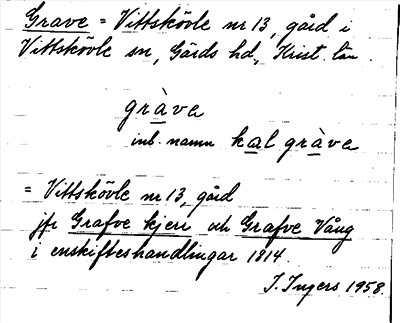 Grave = Vittskövle nr 13, gård i
Vittskövle sn, Gärds hd, Krist. län.
gràva
inb. namn kal gràva
= Vittskövle nr 13, gård
jfr Grafve kjerr och Grafve Vång
i enskifteshandlingar 1814.
I. Ingers 1958.